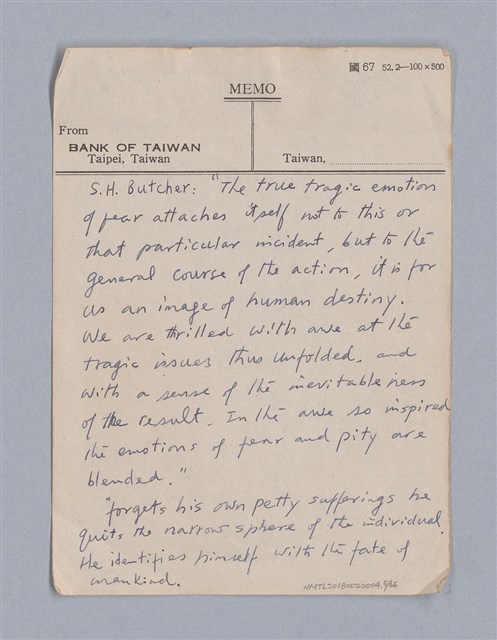 國 67 52. 2—100×500
MEMO
From
BANK OF TAIWAN
Taipei, Taiwan
Taiwan,
S.H. Butcher: "The true tragic emotion
of fear attaches itself not to this or
that particular incident, but to the
general course of the action, it is for
us an image of human destiny.
We are thrilled with awe at the
tragic issues thus unfolded, and
with a sense of the inevitableness
of the result. In the awe so inspired
the emotions of fear and pity are
blended."
"forgets his own petty sufferings he
quits the narrow sphere of the individual.
He identifies himself with the fate of
mankind.
NMTL20180020004.